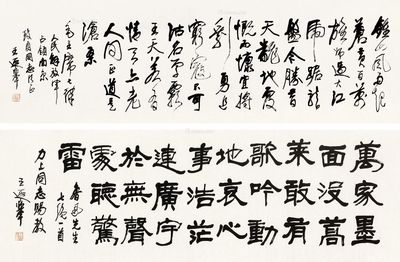 鐘山風雨起
蒼黃百萬
雄師過大江
虎踞龍
盤今勝昔
天翻地覆
慨而慷宜將
剩勇追
窮寇不可
沽名學霸
王天若有
情天亦老
人間正道是
滄桑
毛主席七律
人民解放軍
占領南京
同志
王遐舉
萬家墨
面沒蒿
萊敢有
歌吟動
地哀心
事浩茫
連廣宇
於無聲
處聽驚
雷
魯迅先生
七絕一首
力上同志賜教
王遐舉